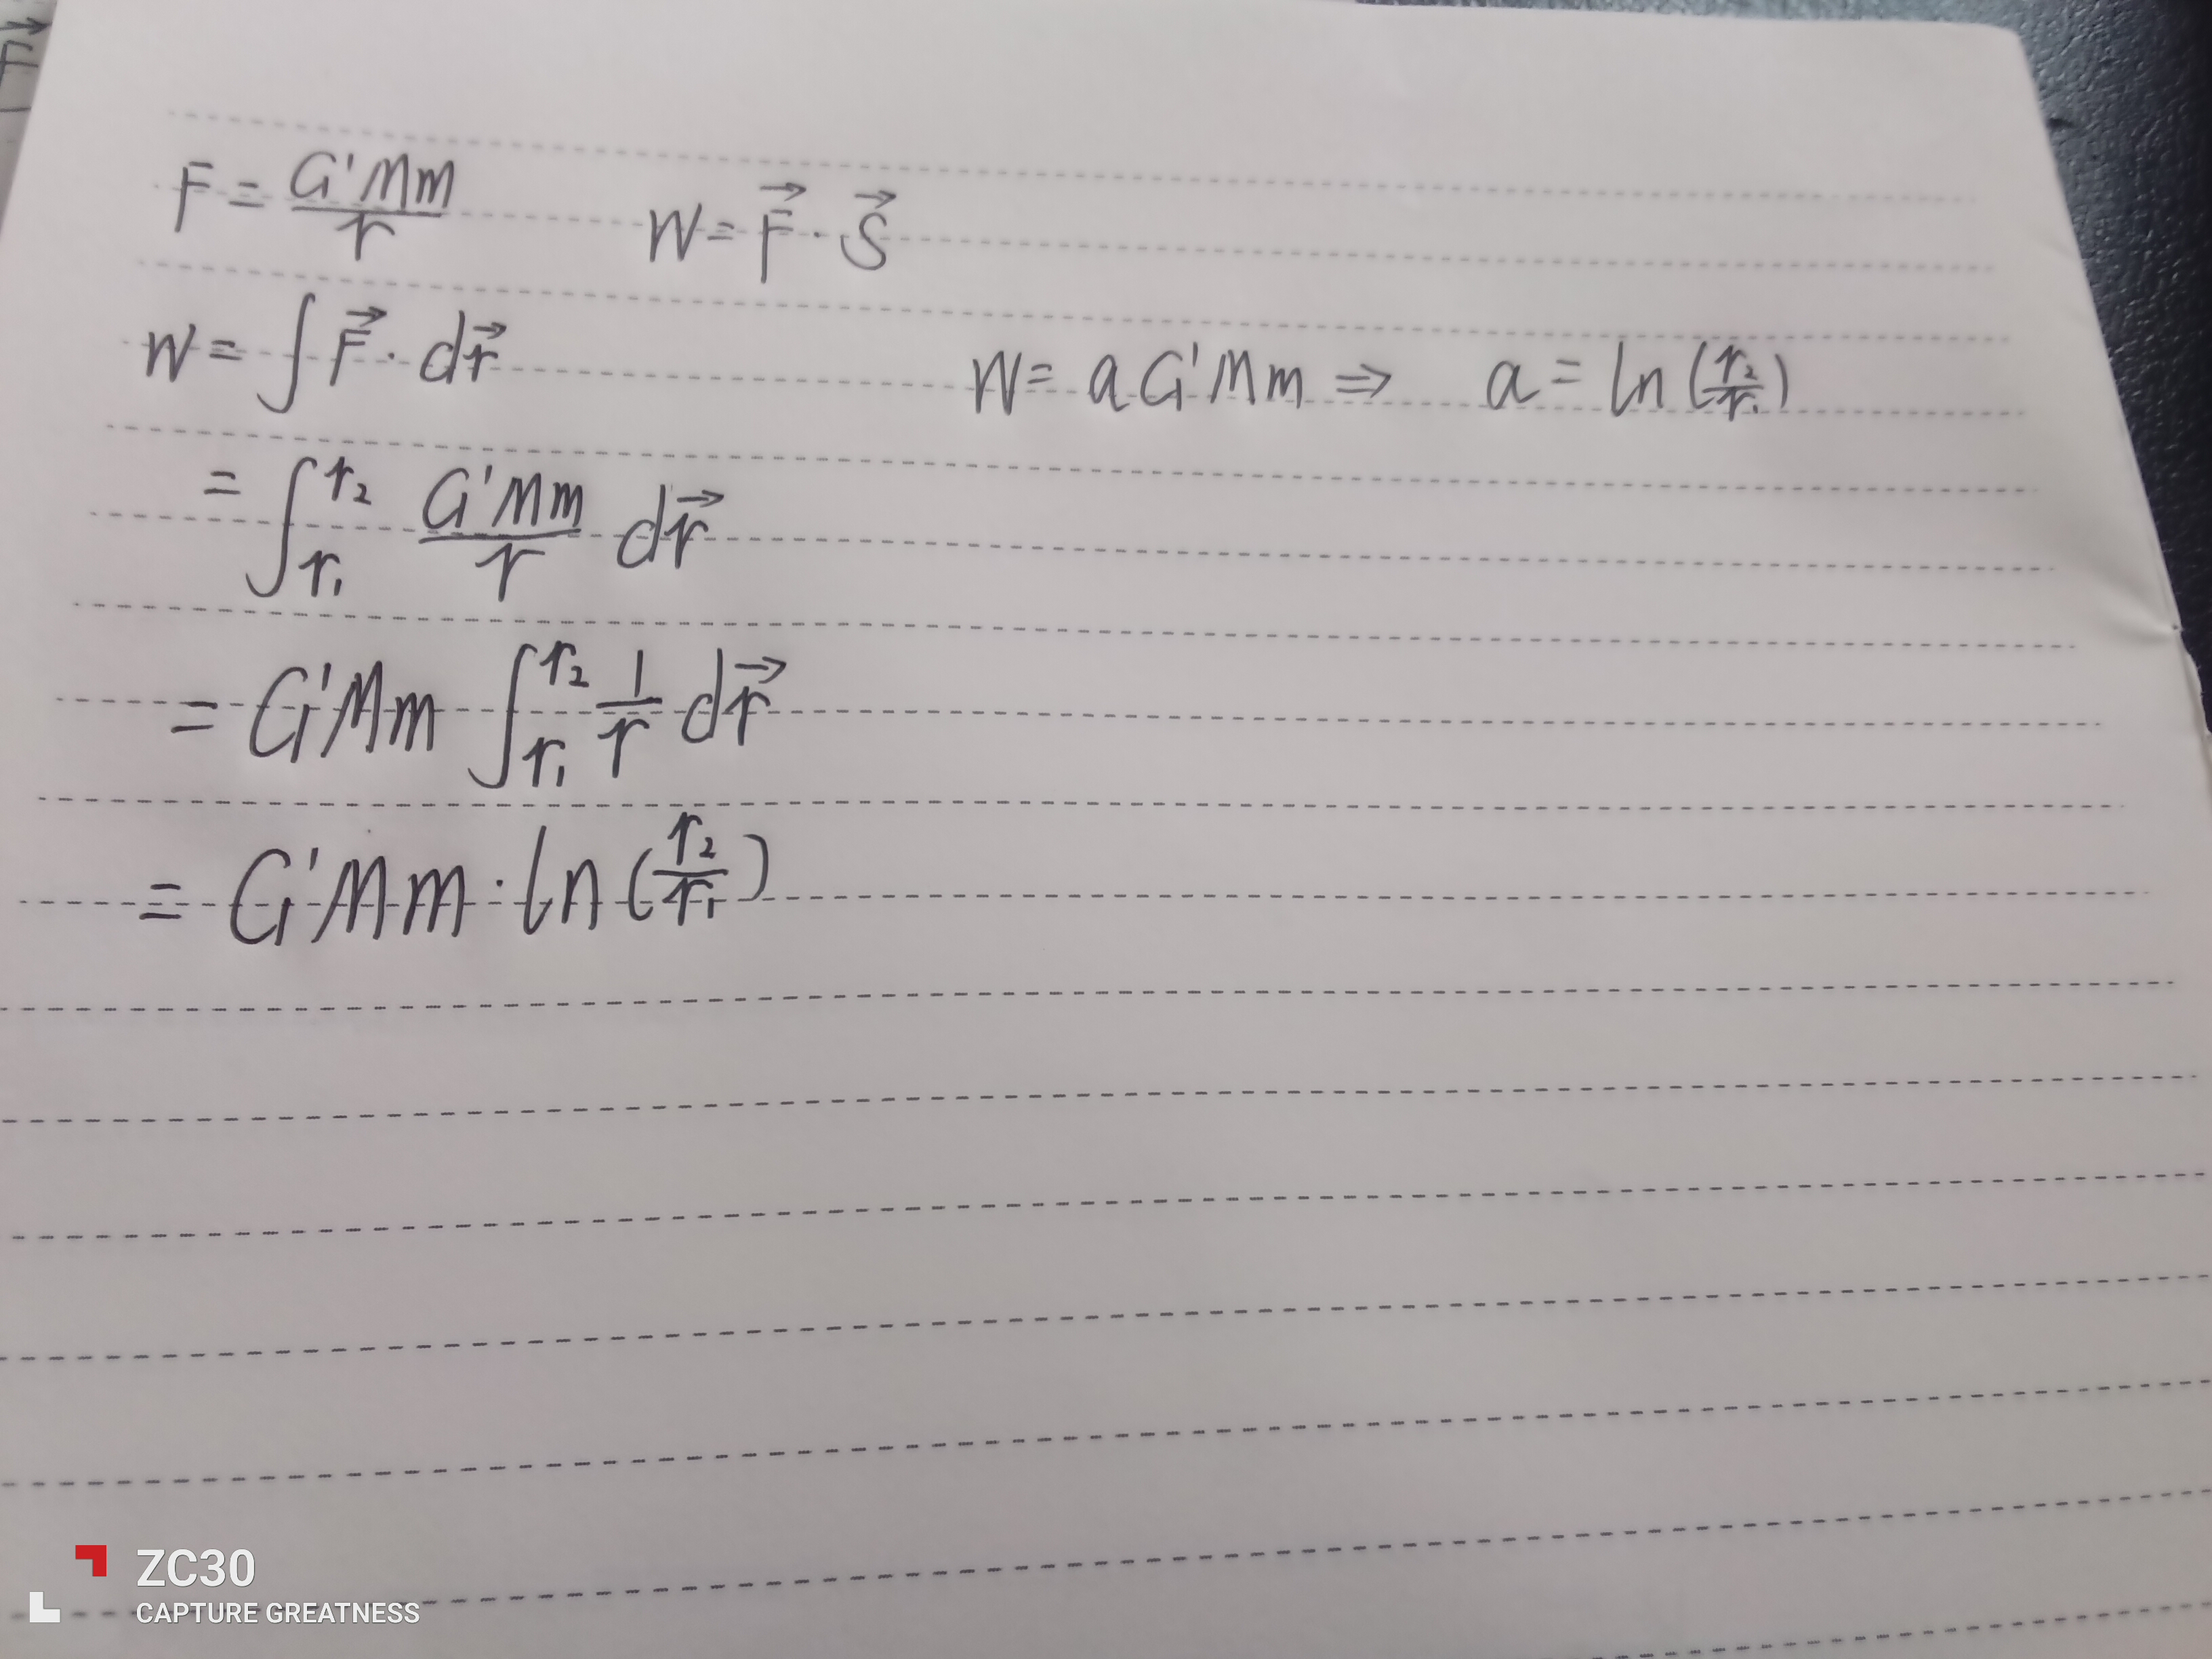 F = G'Mm/r    W = F⃗ · S⃗
W = ∫ F⃗ · dr⃗    W = aG'Mm ⇒ a = ln(r₂/r₁)
= ∫_{r₁}^{r₂} G'Mm/r dr⃗
= G'Mm ∫_{r₁}^{r₂} 1/r dr⃗
= G'Mm · ln(r₂/r₁)
F⃗
ZC30
CAPTURE GREATNESS